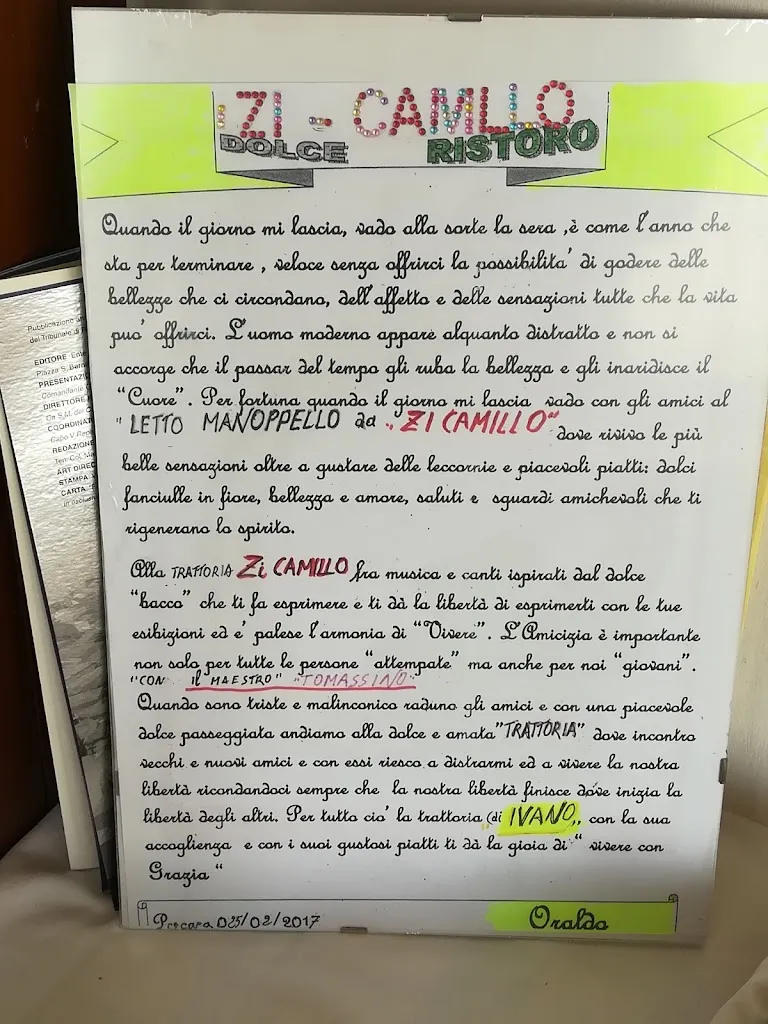 ZI - CAMILLO
DOLCE RISTORO
Quando il giorno mi lascia, vado alla sorte la sera ,è come l'anno che
sta per terminare , veloce senza offrirci la possibilita' di godere delle
bellezze che ci circondano, dell'affetto e delle sensazioni tutte che la vita
puo' offrirci. L'uomo moderno appare alquanto distratto e non si
accorge che il passar del tempo gli ruba la bellezza e gli inaridisce il
"Cuore". Per fortuna quando il giorno mi lascia vado con gli amici al
" LETTO MANOPPELLO ad "ZI CAMILLO"
dove rivivo le più
belle sensazioni oltre a gustare delle leccornie e piacevoli piatti: dolci
fanciulle in fiore, bellezza e amore, saluti e sguardi amichevoli che ti
rigenerano lo spirito.
Alla TRATTORIA Zi CAMILLO fra musica e canti ispirati dal dolce
"bacco" che ti fa esprimere e ti dà la libertà di esprimerti con le tue
esibizioni ed e' palese l'armonia di "Vivere". L'Amicizia è importante
non solo per tutte le persone "attempate" ma anche per noi "giovani".
"CON il MAESTRO" "TOMASSINO"
Quando sono triste e malinconico raduno gli amici e con una piacevole
dolce passeggiata andiamo alla dolce e amata "TRATTORIA" dove incontro
vecchi e nuovi amici e con essi riesco a distrarmi ed a vivere la nostra
libertà ricondandoci sempre che la nostra libertà finisce dove inizia la
libertà degli altri. Per tutto cio' la trattoria (di "IVANO,, con la sua
accoglienza e con i suoi gustosi piatti ti dà la gioia di " vivere con
Grazia "
025/02/2017 Oraldo
Pubblicazione
del Tribunale di
EDITORE
Piazza S.
PRESENTAZI
Comandante
DIRETTORE
COORDINAT
REDAZIONE
ART DIREC
STAMPA
CARTA